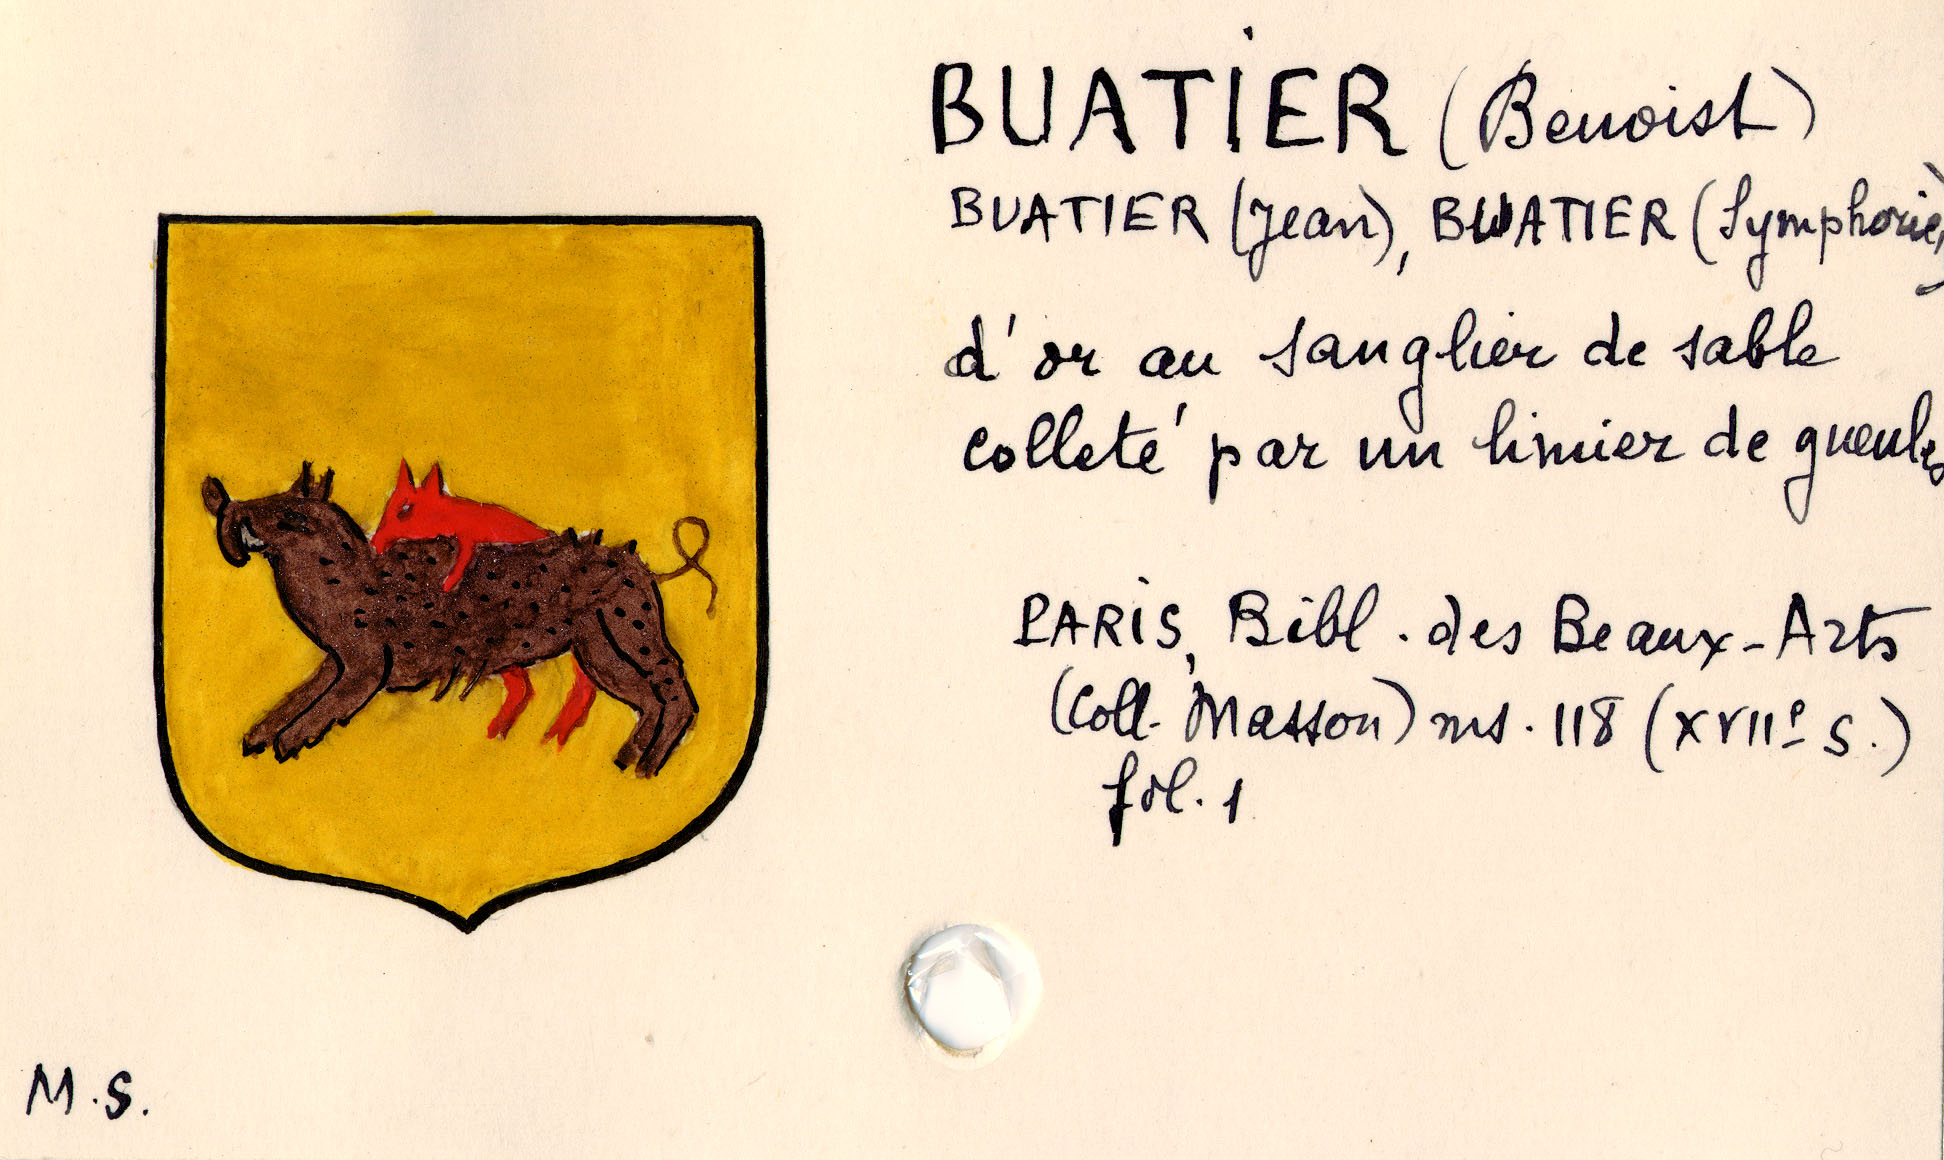 BUATIER (Benoist)
BUATIER (Jean), BUATIER (Symphorien)
d'or au sanglier de sable
colleté par un limier de gueules
PARIS, Bibl. des Beaux-Arts
(Coll. Masson) ms. 118 (XVIIe s.)
fol. 1
M.S.